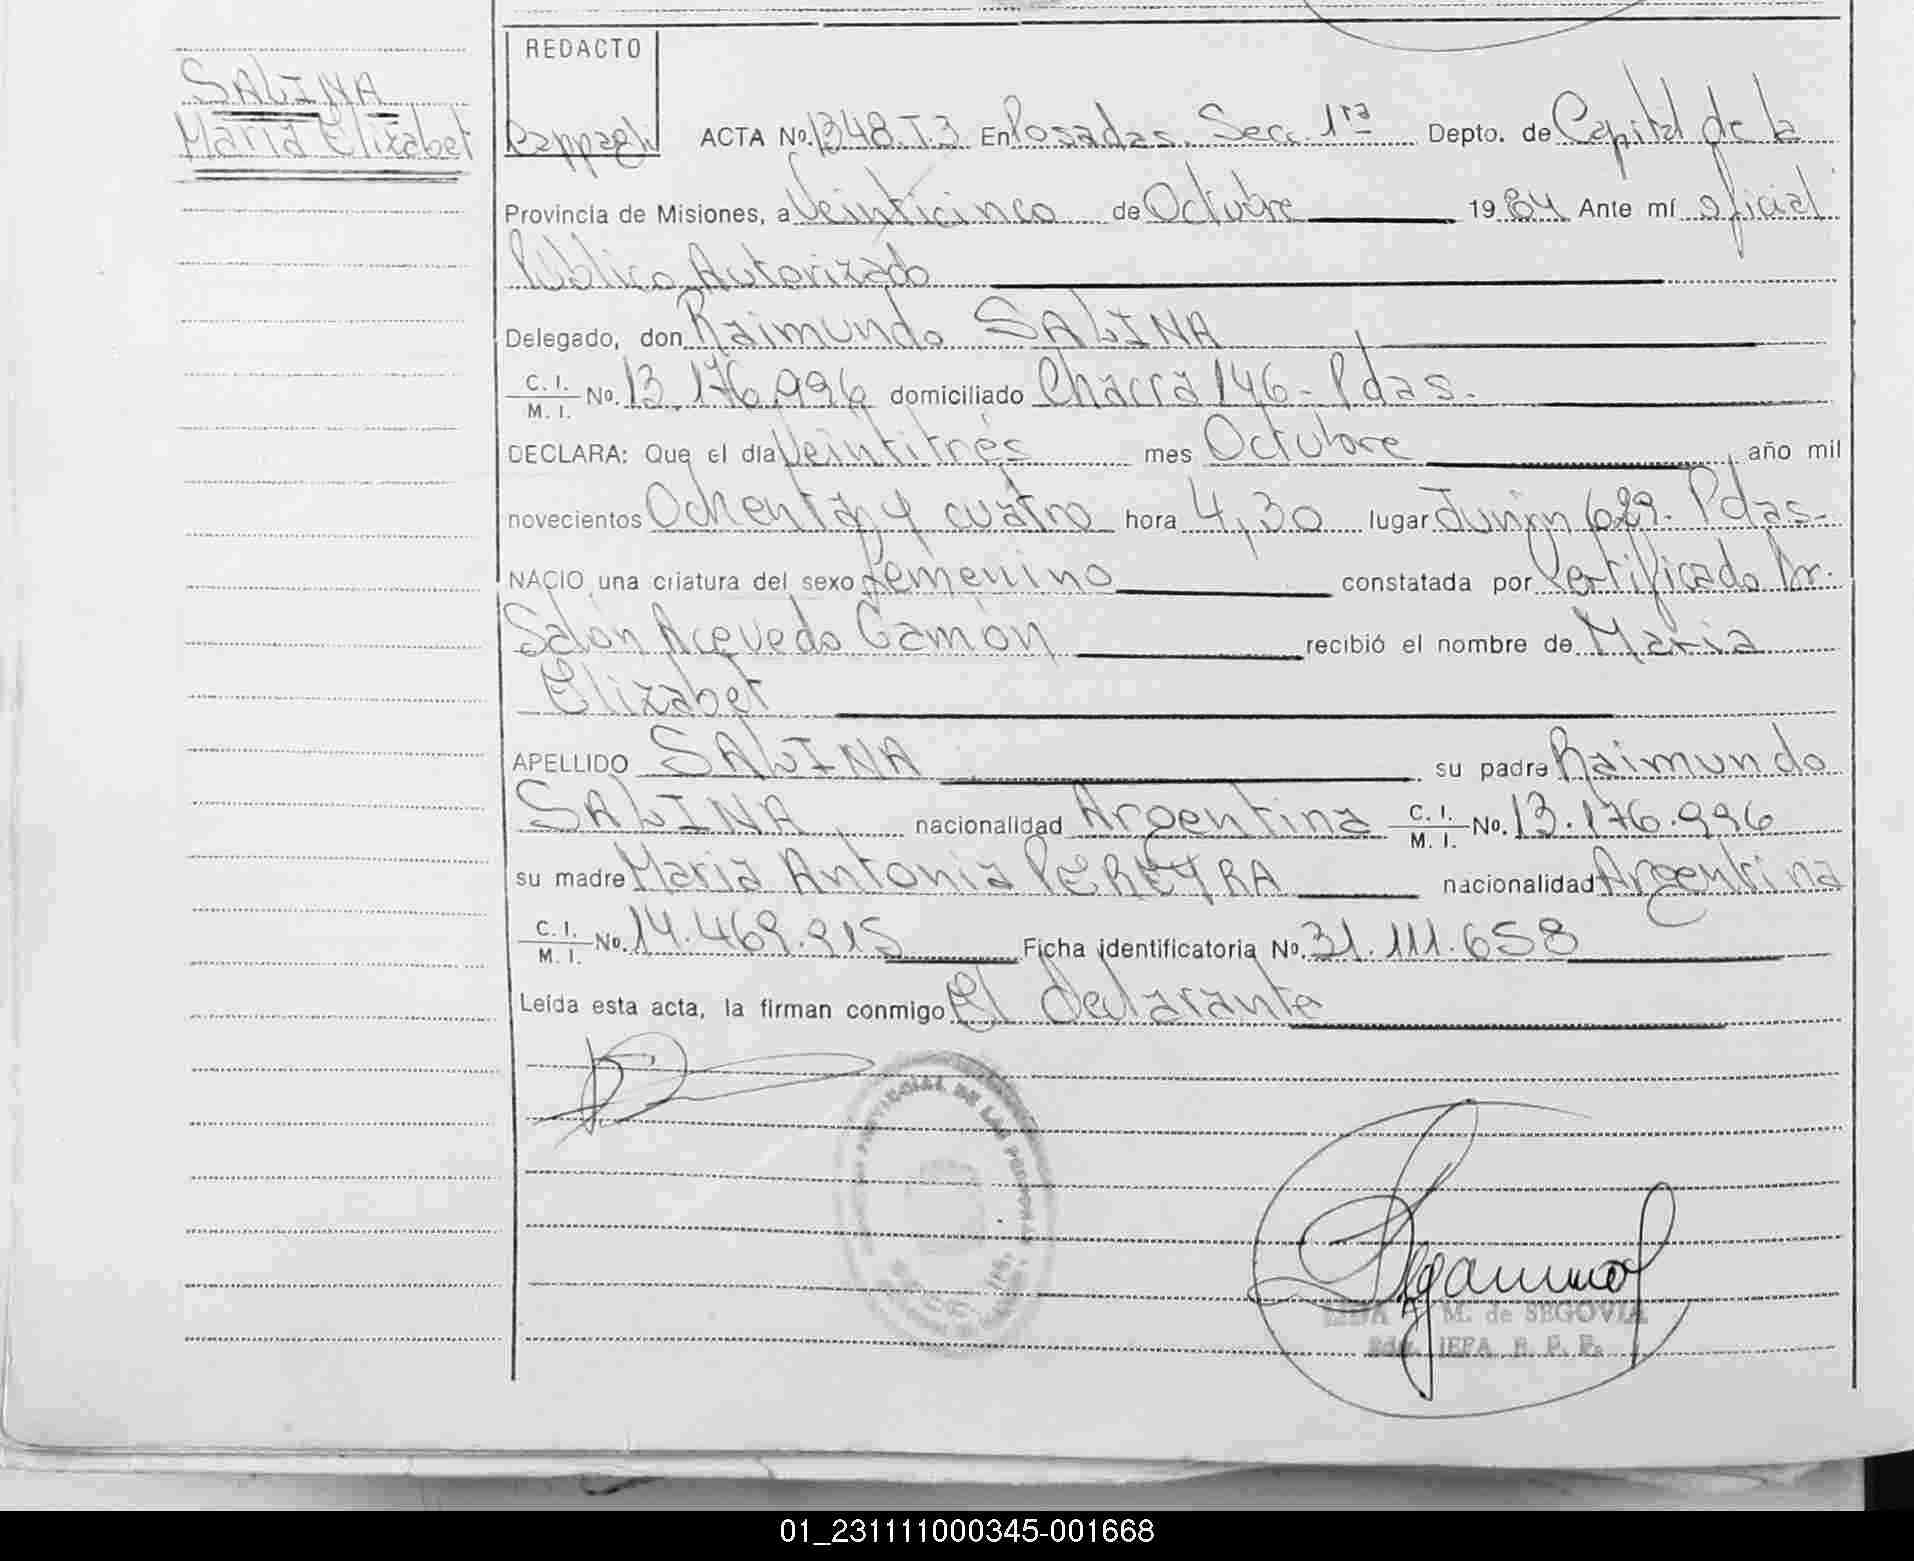 SALINA
Maria Elizabet
REDACTO
ACTA Nº. 1348. T. 3 En Posadas. Secc. 1ra Depto. de Capital de la
Provincia de Misiones, a Veinticinco de Octubre 1984 Ante mí oficial
Público Autorizado
Delegado, don Raimundo SALINA
C. I. / M. I. Nº. 13.176.996 domiciliado Chacra 146 - Pdas.
DECLARA: Que el día Veintitrés mes Octubre, año mil
novecientos Ochenta y cuatro hora 4,30 lugar Junín 629. Pdas-
NACIO una criatura del sexo femenino constatada por Certificado Dr.
Acevedo Gamón recibió el nombre de Maria
Elizabet
APELLIDO SALINA su padre Raimundo
SALINA nacionalidad Argentina C. I. / M. I. Nº. 13.176.996
su madre Maria Antonia PEREYRA nacionalidad Argentina
C. I. / M. I. Nº. 14.469.915 Ficha identificatoria Nº. 31.111.658
Leída esta acta, la firman conmigo El declarante
PROVINCIAL DE LAS PERSONAS
M. de SEGOVIA
JEFA
01_231111000345-001668